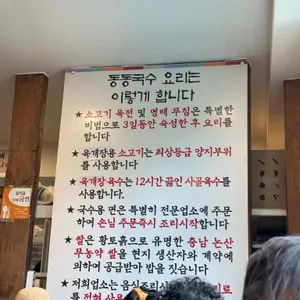 동동국수 요리는
이렇게 합니다
★ 소고기 육전 및 명태 무침은 특별한
비법으로 3일동안 숙성한 후 요리를
합니다
★ 육개장용 소고기는 최상등급 양지부위
를 사용합니다
★ 육개장 육수는 12시간 끓인 사골육수를
사용합니다
★ 국수용 면은 특별히 전문업소에 주문
하여 손님 주문즉시 조리시작합니다
★ 쌀은 황토흙으로 유명한 충남 논산
무농약 쌀을 현지 생산자와 계약에
의하여 공급받아 밥을 짓습니다
★ 저희업소는 음식조리시
를 전혀 사용